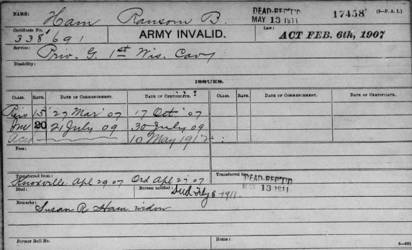 NAME: Ham Ransom B. DEAD-RECORD MAY 13 1911 17458
Certificate No. 338691 ARMY INVALID. ACT FEB. 6th, 1907
Service: Priv. G. 1st Wis. Cav
Disability:
ISSUES.
CLASS. RATE. DATE OF COMMENCEMENT. DATE OF CERTIFICATE. CLASS. RATE. DATE OF COMMENCEMENT. DATE OF CERTIFICATE.
15 27 Mar '07 17 Oct '07
20 21 July 09 30 July 09
10 May 1912
Transferred from
Knoxville Apl 29 07 Ord Apl 27 07 DEAD-RECORD
Died: Bureau notified: Died 1911. MAY 13 1911
Remarks:
Susan R. Ham widow
Former Roll No.